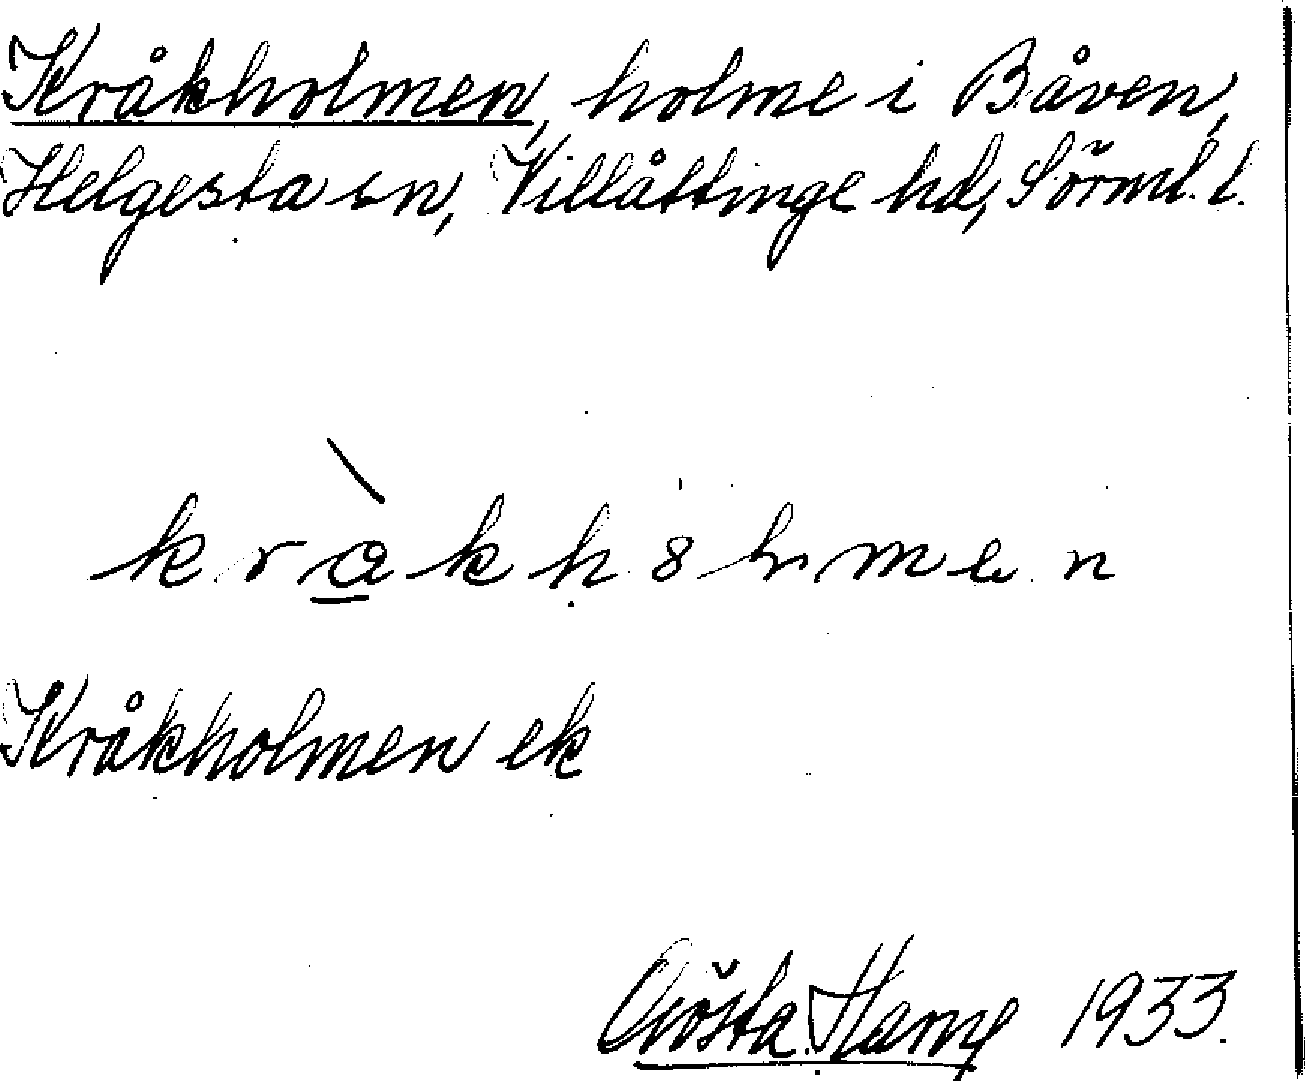 Kråkholmen, holme i Båven,
Helgesta sn, Villåttinge hd, Sörml. l.
Kråkholmen ek
Gösta Hamp 1933.